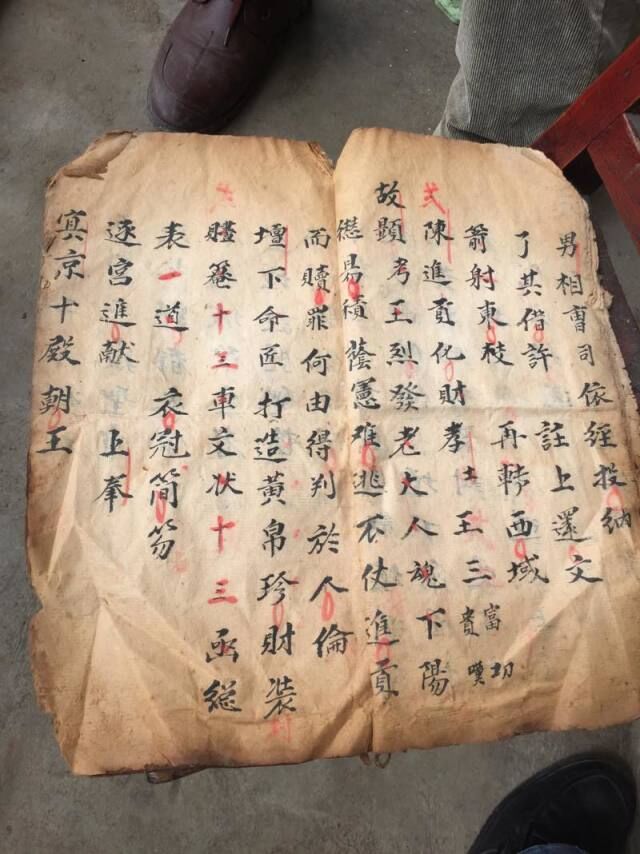 男相曹司依經投納
了其偕許 註上還文
箭射東枝 再轉西域
弍陳進貢化財孝士王三富貴切嘆
故顕考王烈發老大人魂下陽
愆易積蔭憲难逃不仗進貢
而贖罪何由得判於人倫
壇下命匠打造黃帛珍財裝
賍箞十三車文状十三函総
表一道 衣冠簡笏
逐宮進献 上奉
寘京十殿朝王